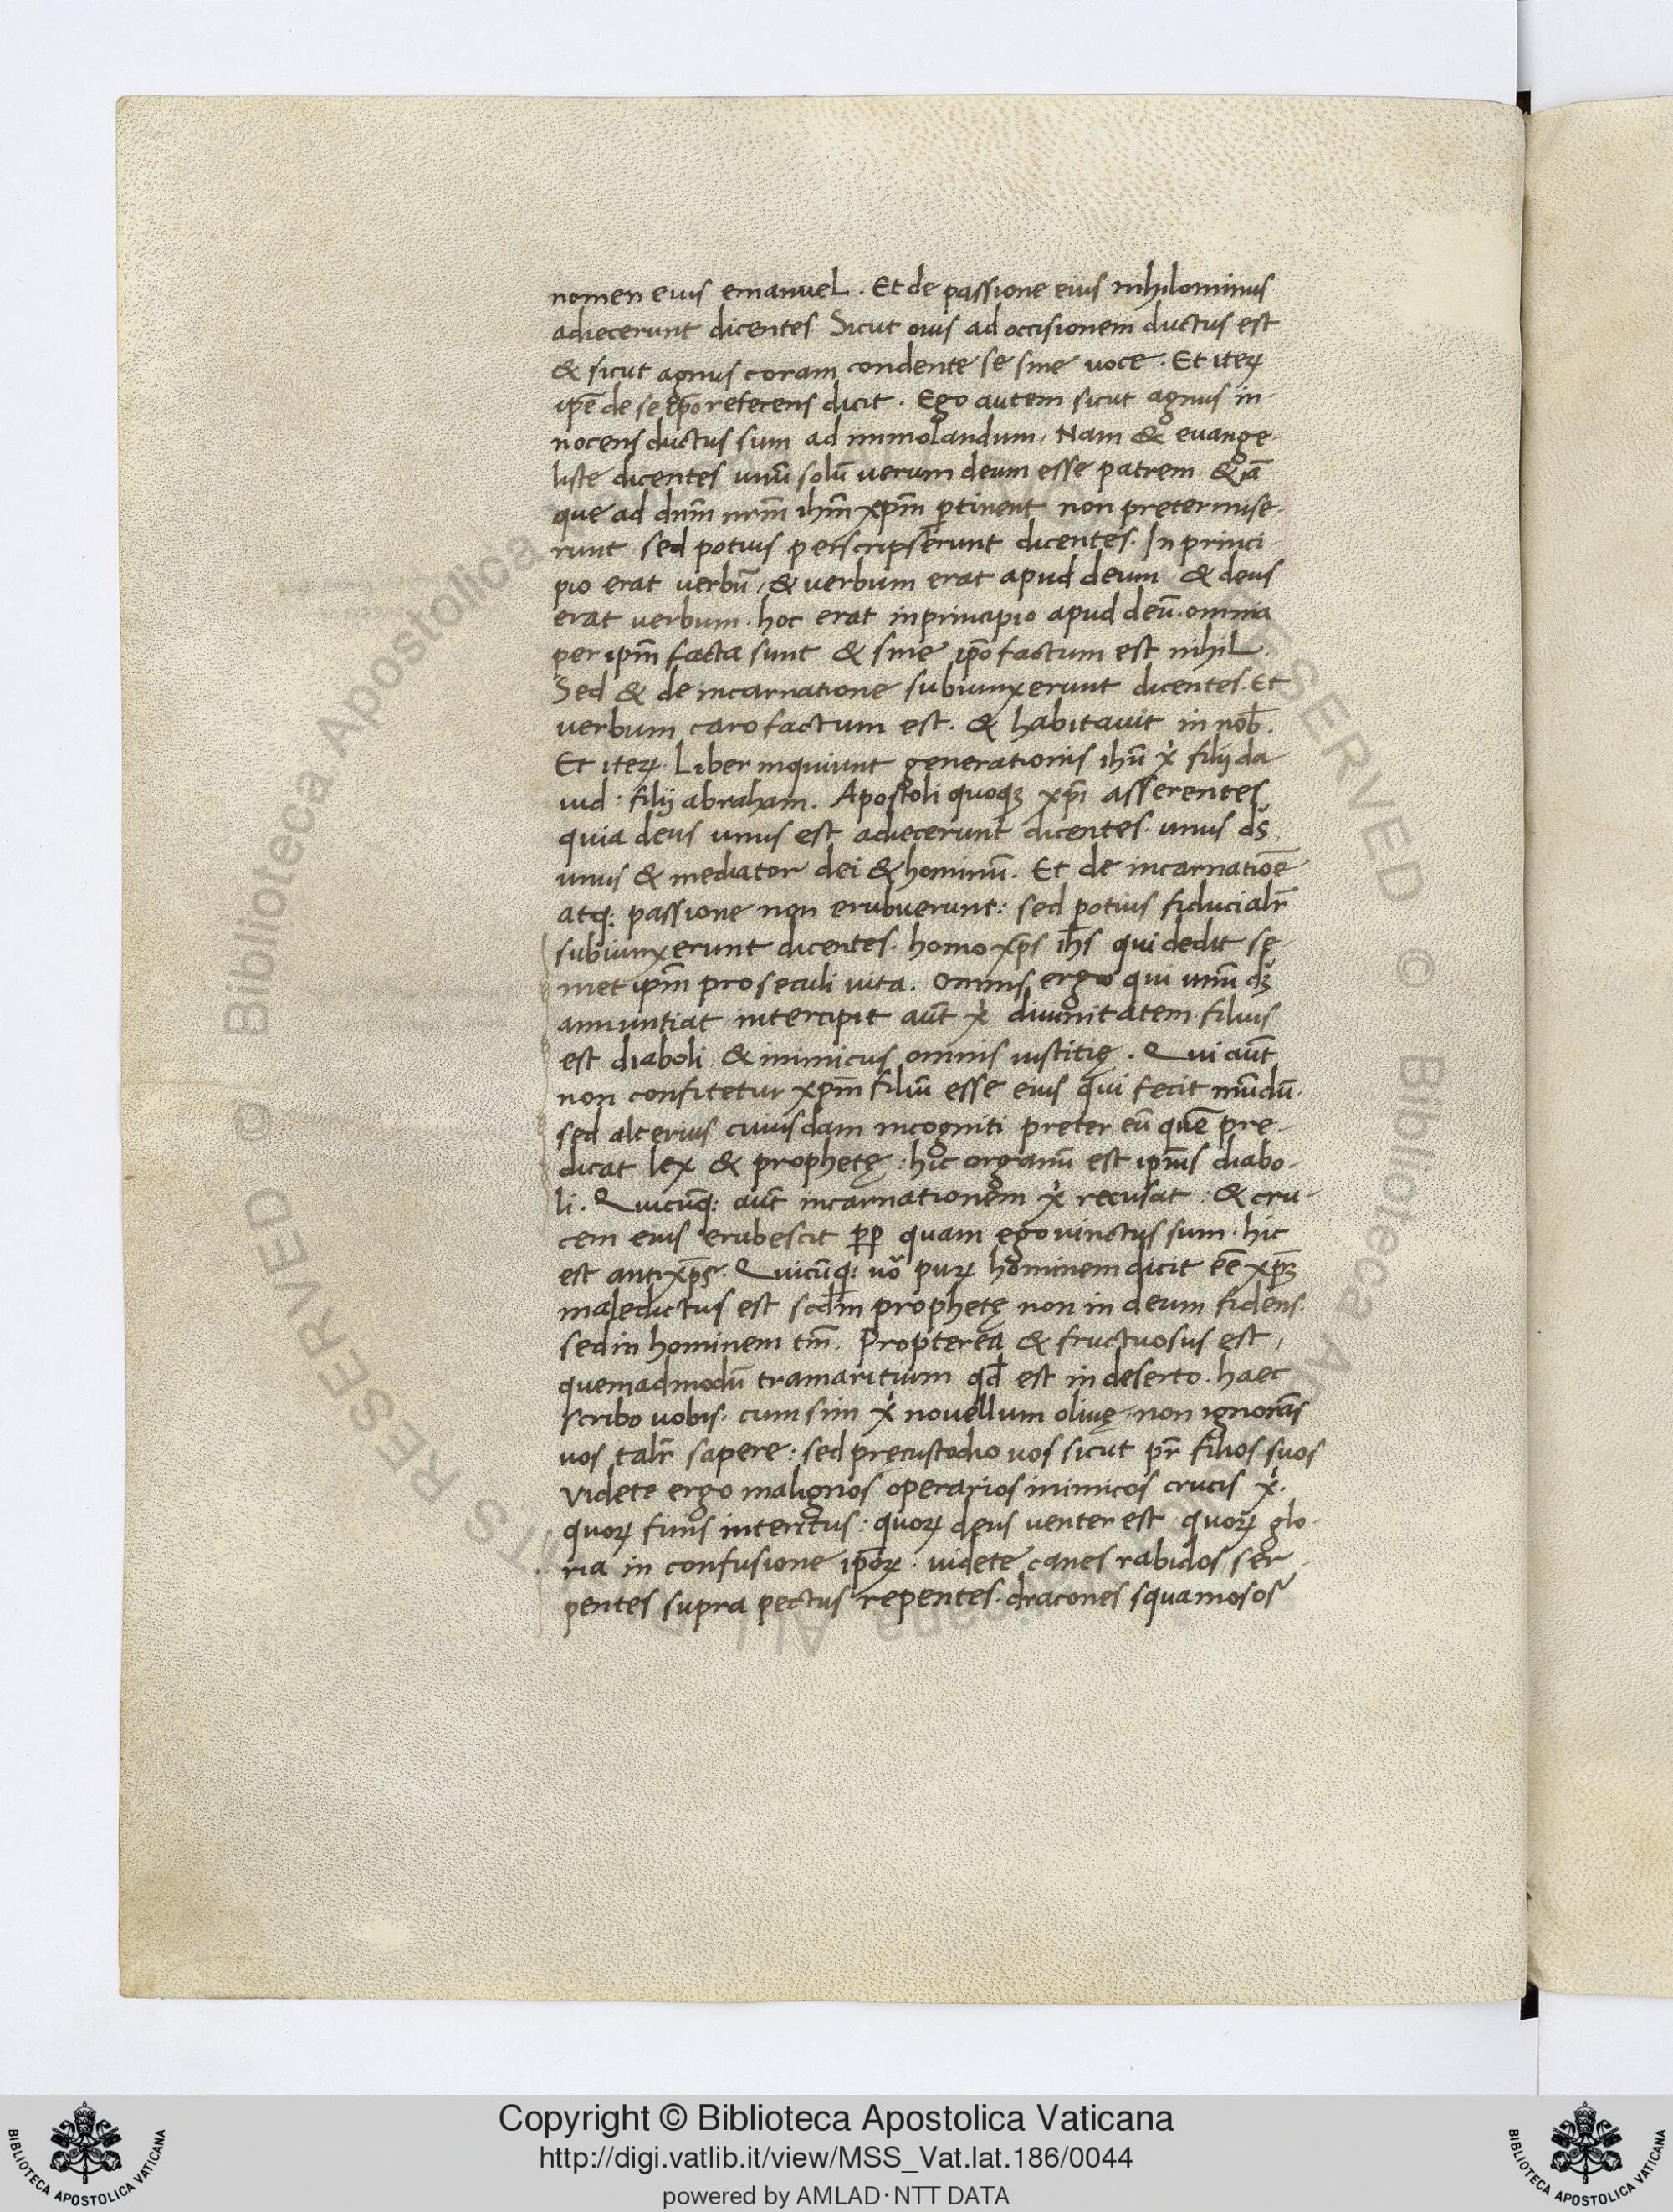 nomen eius emanuel. Et de passione eius nihilominus
adiecerunt dicentes. Sicut ouis ad occisionem ductus est
& sicut agnus coram condente se sine uoce. Et iteꝝ
ip̄e de se ip̄o referens dicit. Ego autem sicut agnus in-
nocens ductus sum ad immolandum. Nam & euange-
liste dicentes unū solū uerum deum esse patrem &
que ad dn̄m nr̄m ihm̄ xp̄m ꝑtinent non pretermise-
runt sed potius perscripserunt dicentes. In princi-
pio erat uerbū, & uerbum erat apud deum & deus
erat uerbum. hoc erat in principio apud deū. omnia
per ip̄m facta sunt & sine ip̄o factum est nihil.
Sed & de incarnatione subiunxerunt dicentes. Et
uerbum caro factum est. & habitauit in nob̄.
Et iteꝝ. Liber inquiunt generationis ihū x̓ filij da
uid: filij abraham. Apostoli quoqꝫ xp̄i asserentes
quia deus unus est adiecerunt dicentes. unus ds̄
unus & mediator dei & hominū. Et de incarnatiōe
atq: passione non erubuerunt: sed potius fiducialr̄
subiunxerunt dicentes. homo xp̄s ih̄s qui dedit sę
met ip̄m pro seculi uita. Omnis ergo qui unū
annuntiat intercipit aūt x̓ diuinitatem filius
est diaboli & inimicus omnis iustitię. Qui aūt
non confitetur xp̄m filiū esse eius qui fecit mūdū.
sed alterius cuiusdam incogniti preter eū quē pre-
dicat lex & prophetę: hic organū est ip̄ius diabo-
li. Quicūq: aūt incarnationem x̓ recusat: & cru-
cem eius erubescit ꝓꝑ quam ego uinctus sum. hic
est antixp̄s. Quicūq: uō puꝝ hominem dicit eē̄ xp̄ꝫ
maledictus est scd̄m prophetę non in deum fidens.
sed in hominem tm̄. Propterea & fructuosus est,
quemadmodū tramaritium qd̄ est in deserto. haec
scribo uobis. cum sim x̓ nouellum oliuę non ignorās
uos talr̄ sapere: sed pręcustodio uos sicut pr̄ filios suos
videte ergo malignos operarios inimicos crucis x̓.
quoꝝ finis interitus: quoꝝ deus uenter est quoꝝ glo-
ria in confusione ip̄oꝝ. uidete canes rabidos ser-
pentes supra pectus repentes. dracones squamosos
Copyright © Biblioteca Apostolica Vaticana
http://digi.vatlib.it/view/MSS_Vat.lat.186/0044
powered by AMLAD·NTT DATA